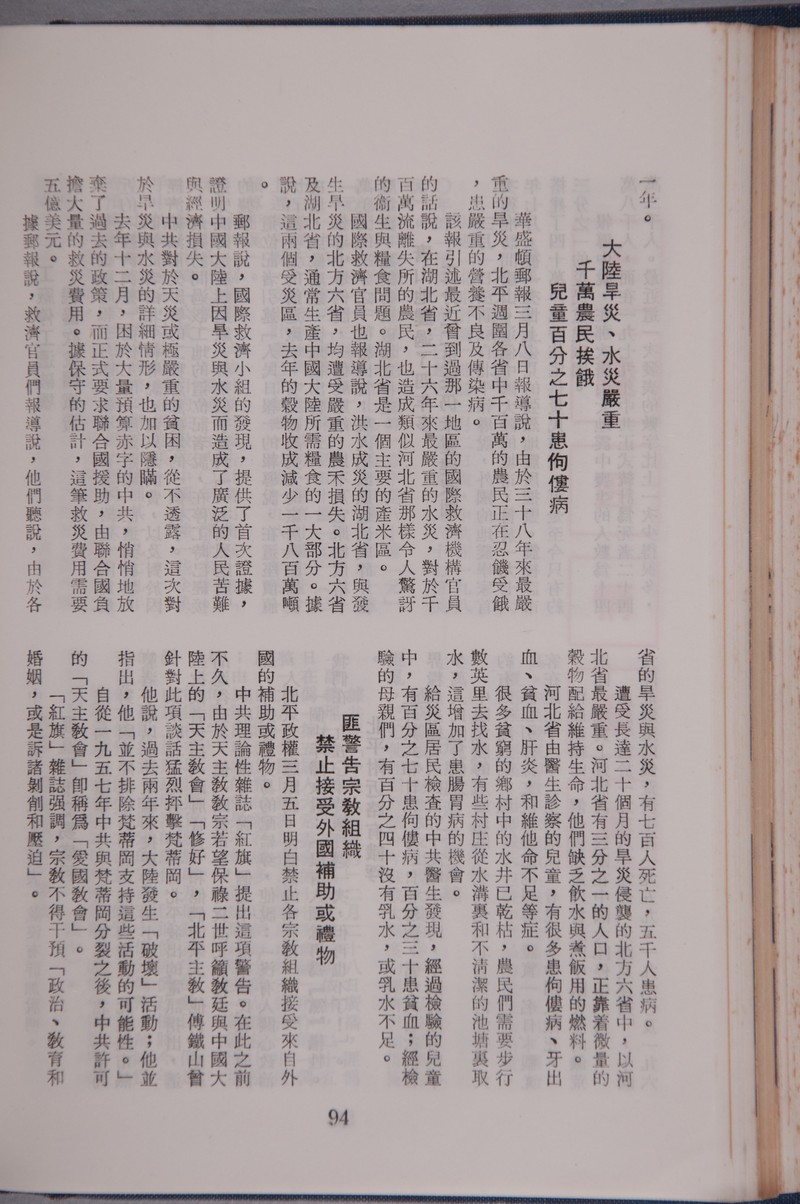 一年。
大陸旱災、水災嚴重
千萬農民挨餓
兒童百分之七十患佝僂病
華盛頓郵報三月八日報導說，由於三十八年來最嚴
重的旱災，北平週圍各省中千百萬的農民正在忍饑受餓
，患嚴重的營養不良及傳染病。
該報引述最近曾到過那一地區的國際救濟機構官員
的話說，在湖北省，二十六年來最嚴重的水災，對於千
百萬流離失所的農民，也造成類似河北省那樣令人驚訝
的衞生與糧食問題。湖北省是一個主要的產米區。
國際救濟官員也報導說，洪水成災的湖北省，與發
生旱災的北方六省，均遭受嚴重的農禾損失。北方六省
及湖北省，通常生產中國大陸所需糧食的一大部分。據
說，這兩個受災區，去年的穀物收成減少一千八百萬噸
。
郵報說，國際救濟小組的發現，提供了首次證據，
證明中國大陸上因旱災與水災而造成了廣泛的人民苦難
與經濟損失。
中共對於天災或極嚴重的貧困，從不透露，這次對
於旱災與水災的詳細情形，也加以隱瞞。
去年十二月，困於大量預算赤字的中共，悄悄地放
棄了過去的政策，而正式要求聯合國援助，由聯合國負
擔大量的救災費用。據保守的估計，這筆救災費用需要
五億美元。
據郵報說，救濟官員們報導說，他們聽說，由於各
省的旱災與水災，有七百人死亡，五千人患病。
遭受長達二十個月的旱災侵襲的北方六省中，以河
北省最嚴重。河北省有三分之一的人口，正靠着微量的
穀物配給維持生命，他們缺乏飲水與煮飯用的燃料。
河北省由醫生診察的兒童，有很多患佝僂病、牙出
血、貧血、肝炎，和維他命不足等症。
很多貧窮的鄉村中的水井已乾枯，農民們需要步行
數英里去找水，有些村庄從水溝裏和不清潔的池塘裏取
水，這增加了患腸胃病的機會。
給災區居民檢查的中共醫生發現，經過檢驗的兒童
中，有百分之七十患佝僂病，百分之三十患貧血；經檢
驗的母親們，有百分之四十沒有乳水，或乳水不足。
匪警告宗敎組織
禁止接受外國補助或禮物
北平政權三月五日明白禁止各宗敎組織接受來自外
國的補助或禮物。
中共理論性雜誌「紅旗」提出這項警告。在此之前
不久，由於天主敎敎宗若望保祿二世呼籲敎廷與中國大
陸上的「天主敎會」「修好」，「北平主敎」傅鐵山曾
針對此項談話猛烈抨擊梵蒂岡。
他說，過去兩年來，大陸發生「破壞」活動；他並
指出，他「並不排除梵蒂岡支持這些活動的可能性。」
自從一九五七年中共與梵蒂岡分裂之後，中共許可
的「天主敎會」卽稱爲「愛國敎會」。
「紅旗」雜誌强調，宗敎不得干預「政治、敎育和
婚姻，或是訴諸剝削和壓迫」。
94